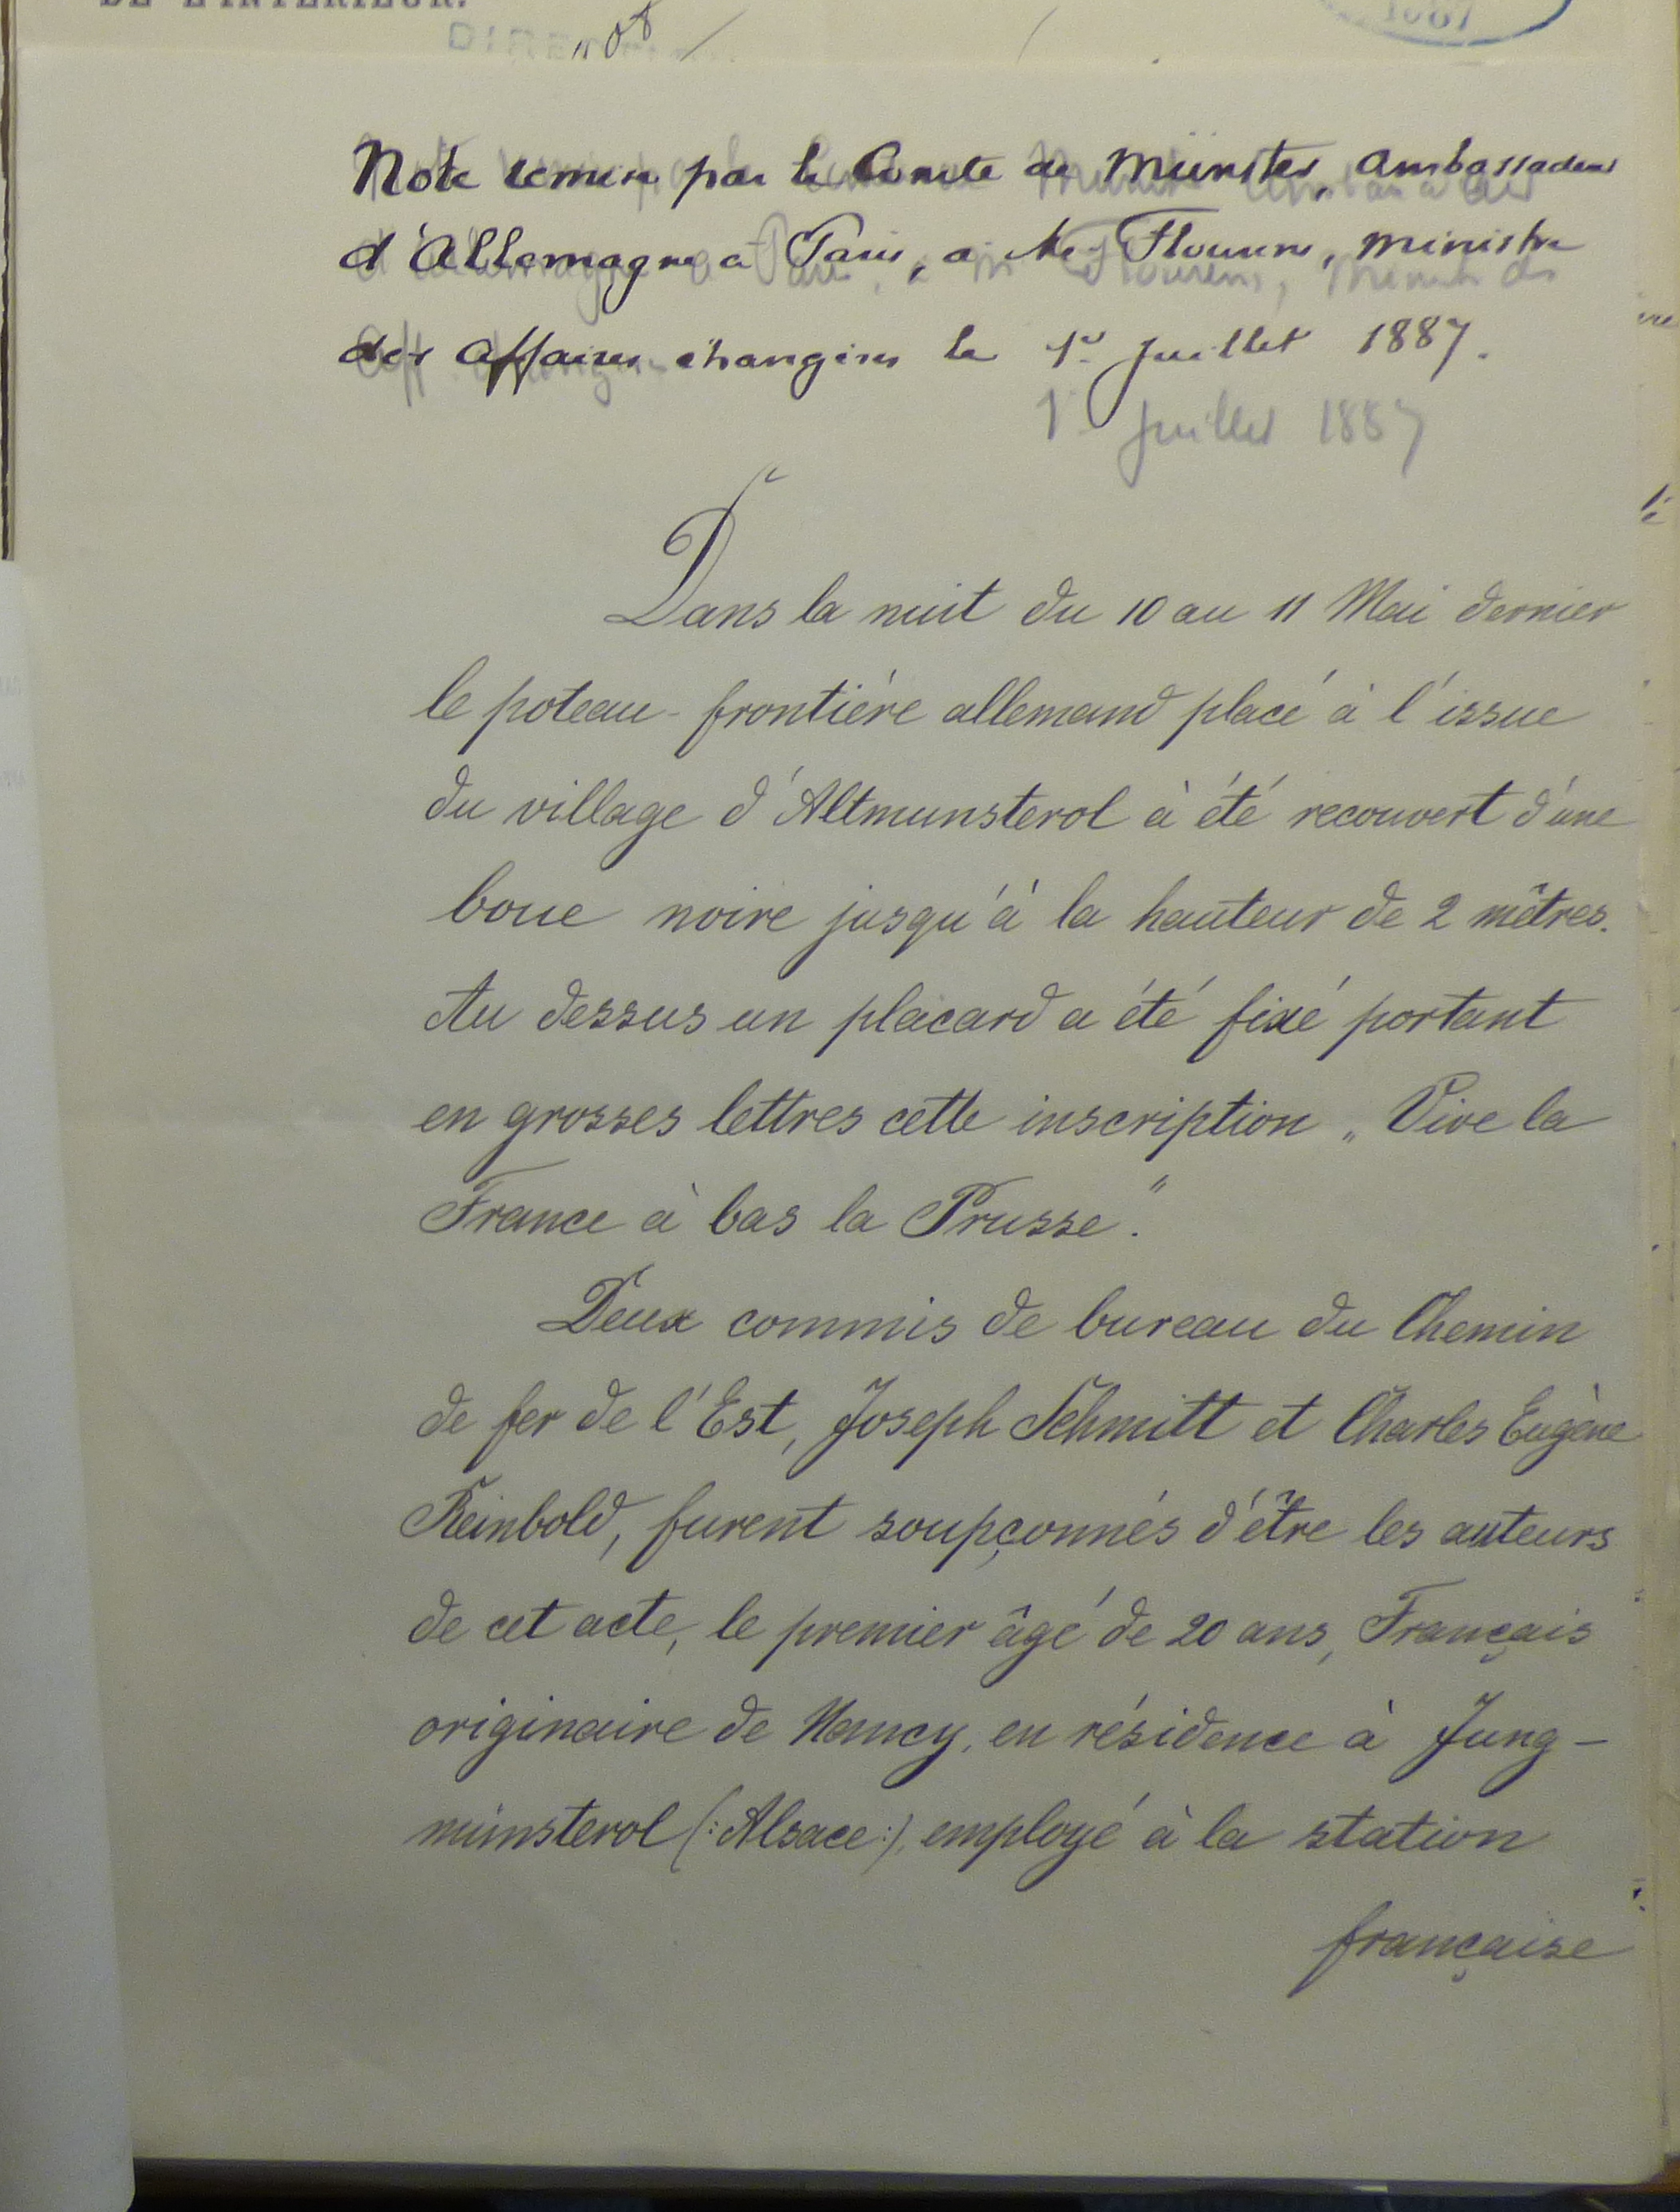 DE L'INTERIEUR.
Note remise par le Comte de Münster, ambassadeur
d'Allemagne à Paris, à M. Flourens, ministre
des affaires étrangères le 1er Juillet 1887.
1er Juillet 1887
Dans la nuit du 10 au 11 Mai dernier
le poteau-frontière allemand placé à l'issue
du village d'Altmunsterol à été recouvert d'une
boue noire jusqu'à la hauteur de 2 mêtres.
Au dessus un placard a été fixé portant
en grosses lettres cette inscription „Vive la
France à bas la Prusse."
Deux commis de bureau du Chemin
de fer de l'Est, Joseph Schmitt et Charles Eugène
Reinbold, furent soupçonnés d'être les auteurs
de cet acte, le premier âgé de 20 ans, Français
originaire de Nancy, en résidence à Jung-
münsterol (:Alsace:), employé à la station
française